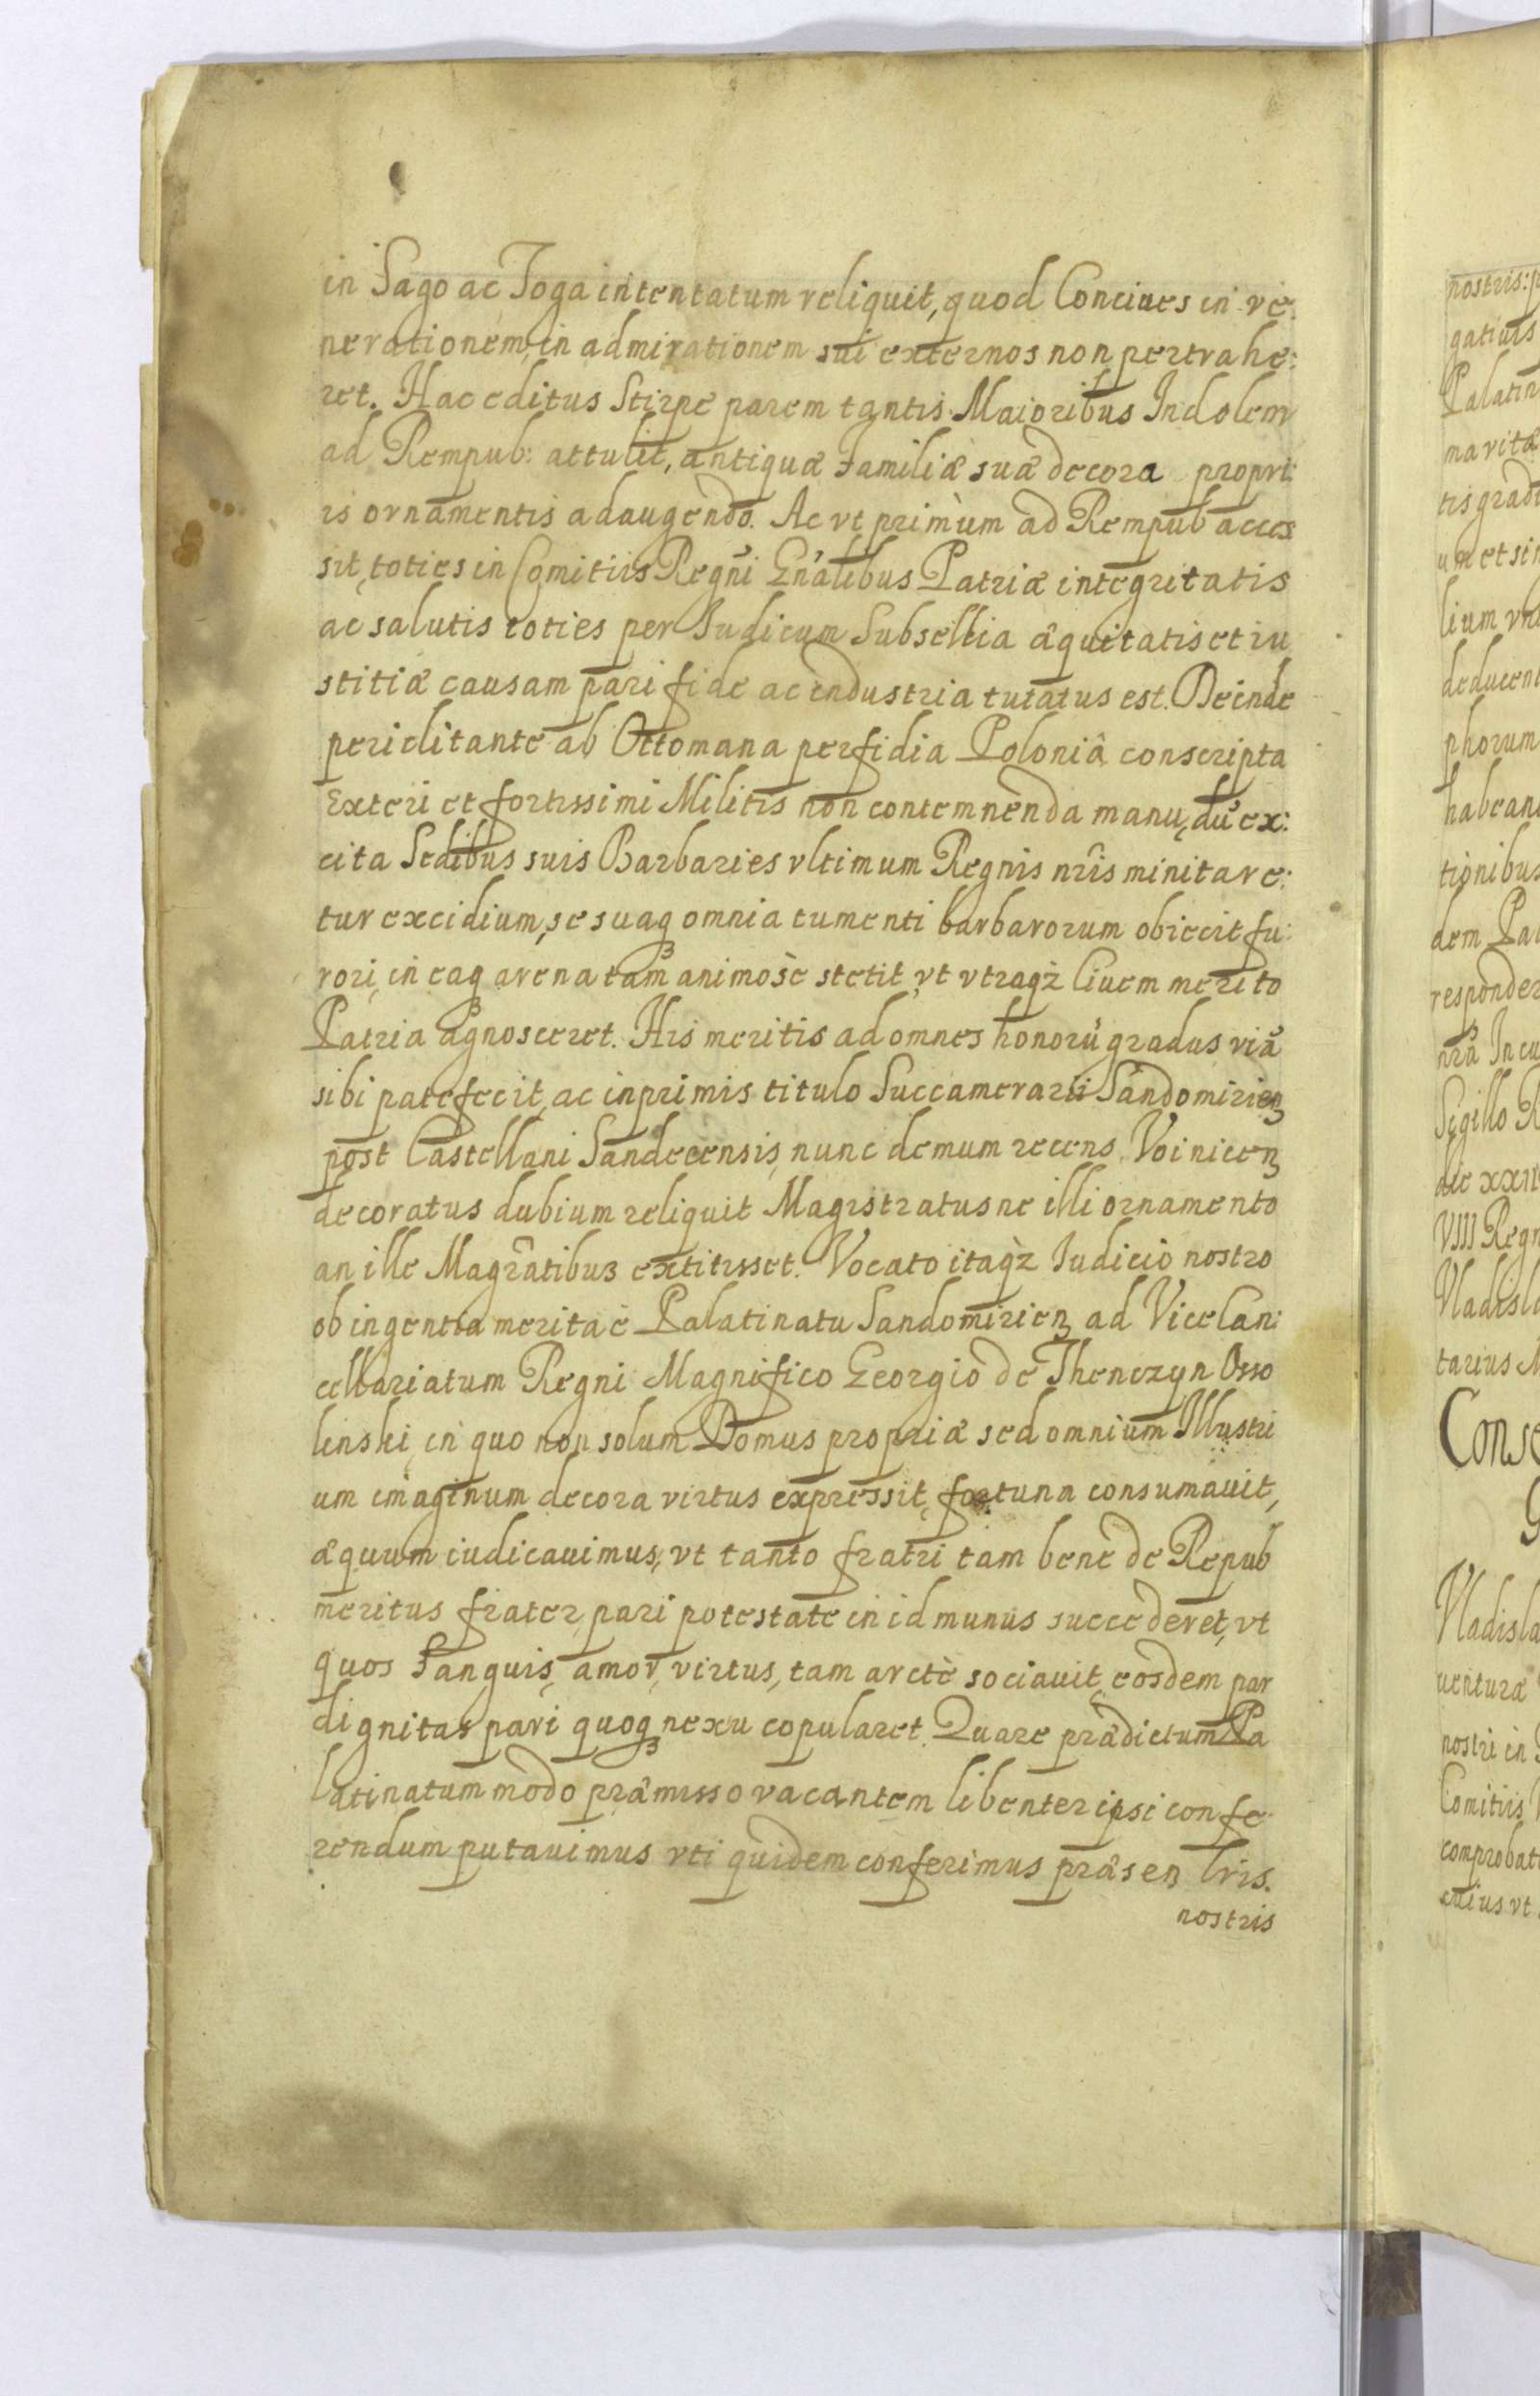 in Sago ac Toga intentatum reliquit, quod Conciues in ve:
nerationem, in admirationem sui externos non pertrahe:
ret. Hac editus Stirpe parem tantis Maioribus Indolem
ad Rempub: attulit, antiquæ Familiæ suæ decora propri:
is ornamentis adaugendo. Ac vt primùm ad Rempub acces
sit, toties in Comitiis Regni Gn̄alibus Patriæ integritatis
ac salutis toties per Iudicum Subsellia æquitatis et iu
stitiæ causam pari fide ac industria tutatus est. Deinde
periclitante ab Ottomana perfidia Poloniâ conscripta
Exteri et fortissimi Militis non contemnenda manu, dū ex:
cita Sedibus suis Barbaries vltimum Regnis nr̄is minitare:
tur excidium, se suaqꝫ omnia tumenti barbarorum obiecit fu:
rori, in eaqꝫ arena tam animosè stetit, vt vtraqꝫ Ciuem merito
Patria agnosceret. His meritis ad omnes honorū gradus viā
sibi patefecit, ac inprimis titulo Succamerarii Sandomirienꝫ
post Castellani Sandecensis, nunc demum recens Voinicenꝫ
decoratus dubium reliquit Magistratusne illi ornamento
an ille Magr̄atibus extitisset. Vocato itaqꝫ Iudicio nostro
ob ingentia merita è Palatinatu Sandomirienꝫ ad Vicecan:
cellariatum Regni Magnifico Georgio de Thenczyn Osso
linski, in quo non solum Domus propriæ sed omnium Illustri
um imaginum decora virtus expressit, fortuna consumauit,
æquum iudicauimus, vt tanto fratri tam bene de Repub
meritus frater, pari potestate in id munus succederet, vt
quos Sanguis, amor, virtus, tam arctè sociauit, eosdem par
dignitas pari quoqꝫ nexu copularet. Quare prædictum Pa
latinatum modo præmisso vacantem libenter ipsi confe
rendum putauimus vti quidem conferimus præsenꝫ lris.
nostris
nostris: p
gatiuis
Palatin
ma vitæ
tis gradu
um et sin
lium vn
deducent
phorum
habean
tionibus
dem Pal
responder
nrā In cu
Sigillo R
die XXII
VIII Regn
Vladisla
tarius M
Conse
G
Vladisla
uenturæ
nostri in
Comitiis
comprobat
cuius vt